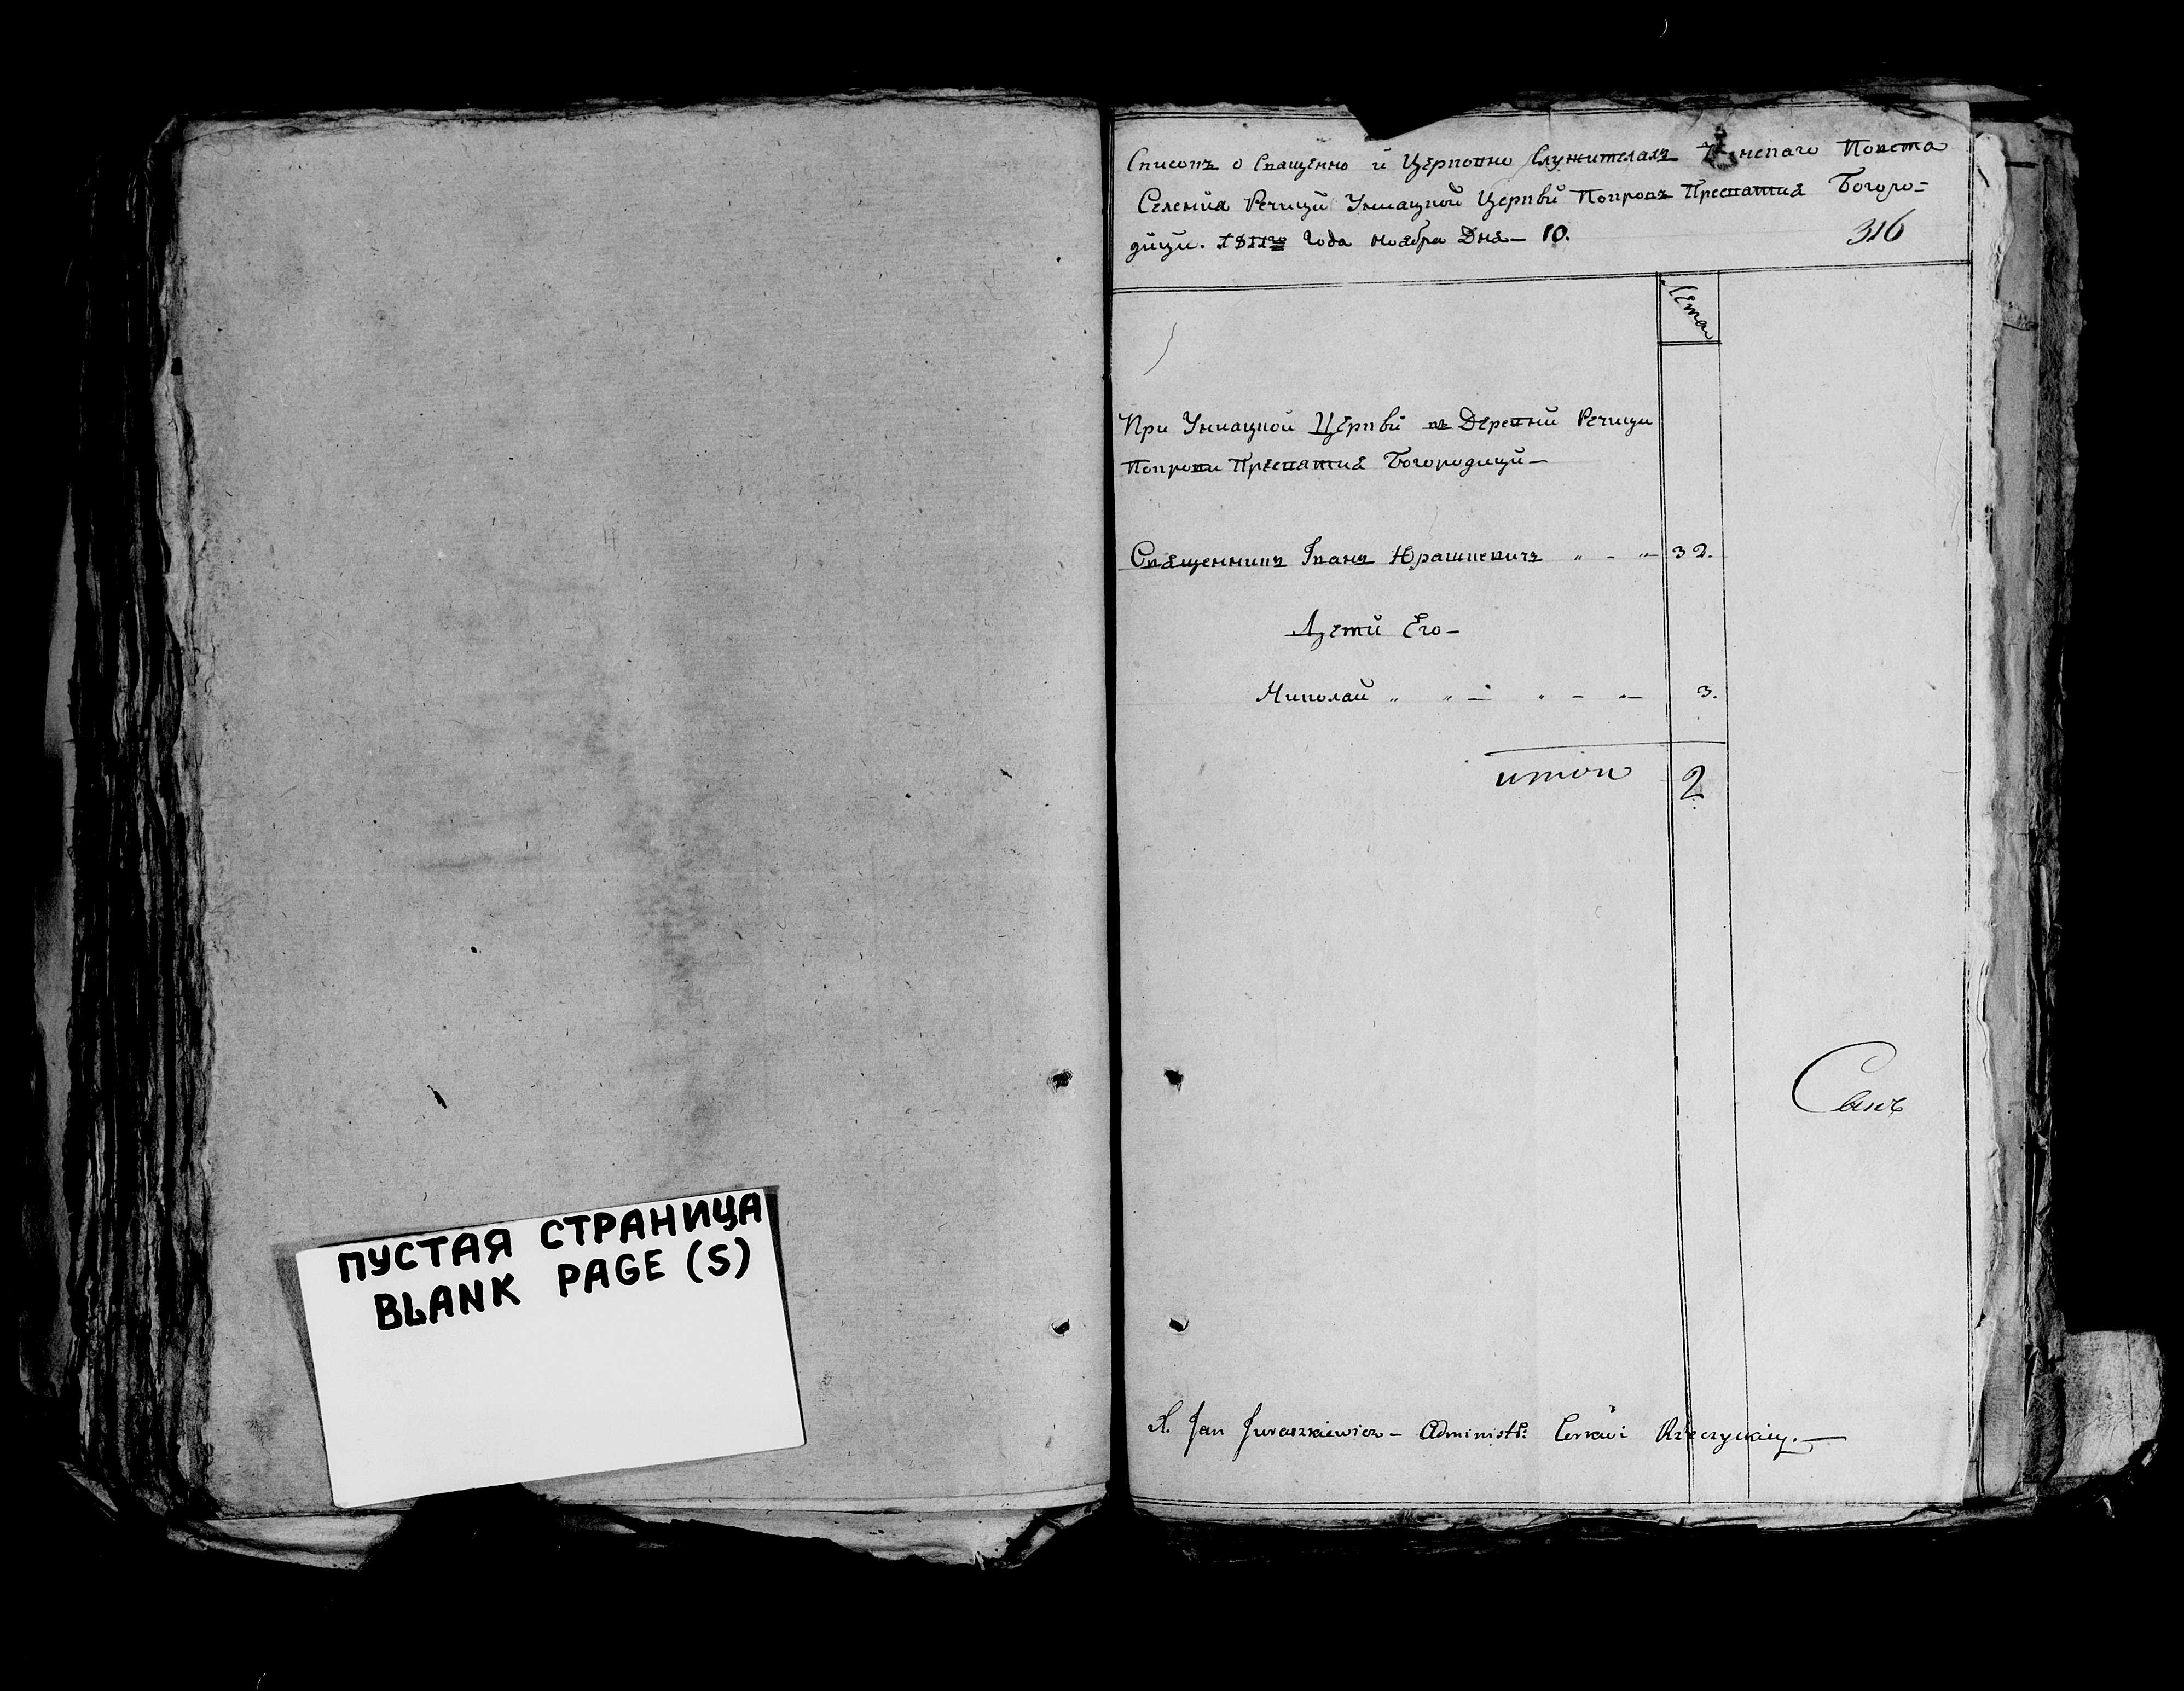 ПУСТАЯ СТРАНИЦА
BLANK PAGE (S)
Списокъ о Сващенно и Церковно Служителахъ Повета
Селениа Речици Униацкой Церкви Покровъ Пресватиа Богоро-
дици. 1811го Года Ноабра Дна - 10.
316
Лета
При Униацкой Церкви въ Деревни Речици
Покрови Пресватиа Богородици -
Сващенникъ Іванъ Юрашкевичъ 32.
Дети Его -
Николай 3.
итого 2
Сынъ
X. Jan Juraszkiewicz - Administr: Cerkwi Rzeczyckiey. -